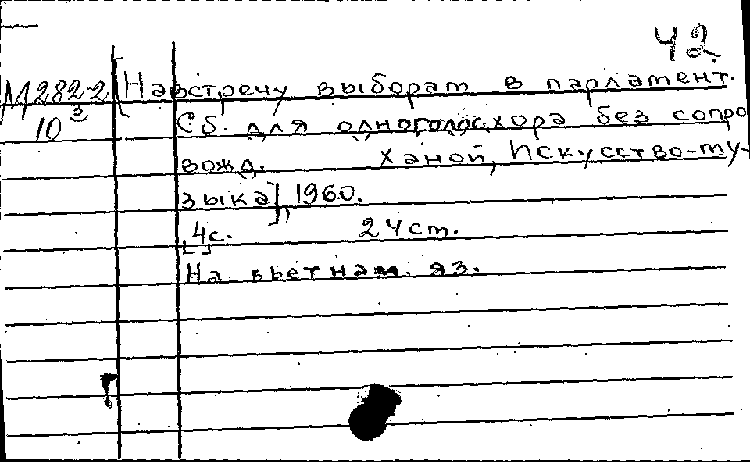 42
М282-2 [Навстречу выборам в парламент.
3
10 Сб. для одноголос. хора без сопро
вожд. Ханой, Искусство-му-
зыка] 1960.
[4]с. 24 см.
На вьетнам. яз.